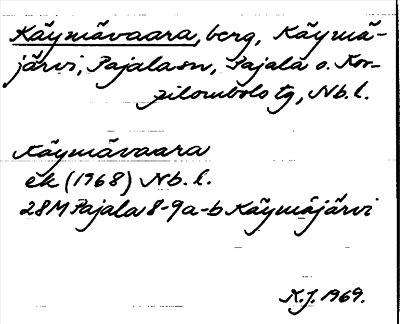 Käymävaara, berg, Käymä-
järvi, Pajala sn, Pajala o. Kor-
pilombolo tg, Nb. l.
Käymävaara
ek (1968) Nb. l.
28M Pajala 8-9a-b Käymäjärvi
K.J. 1969.